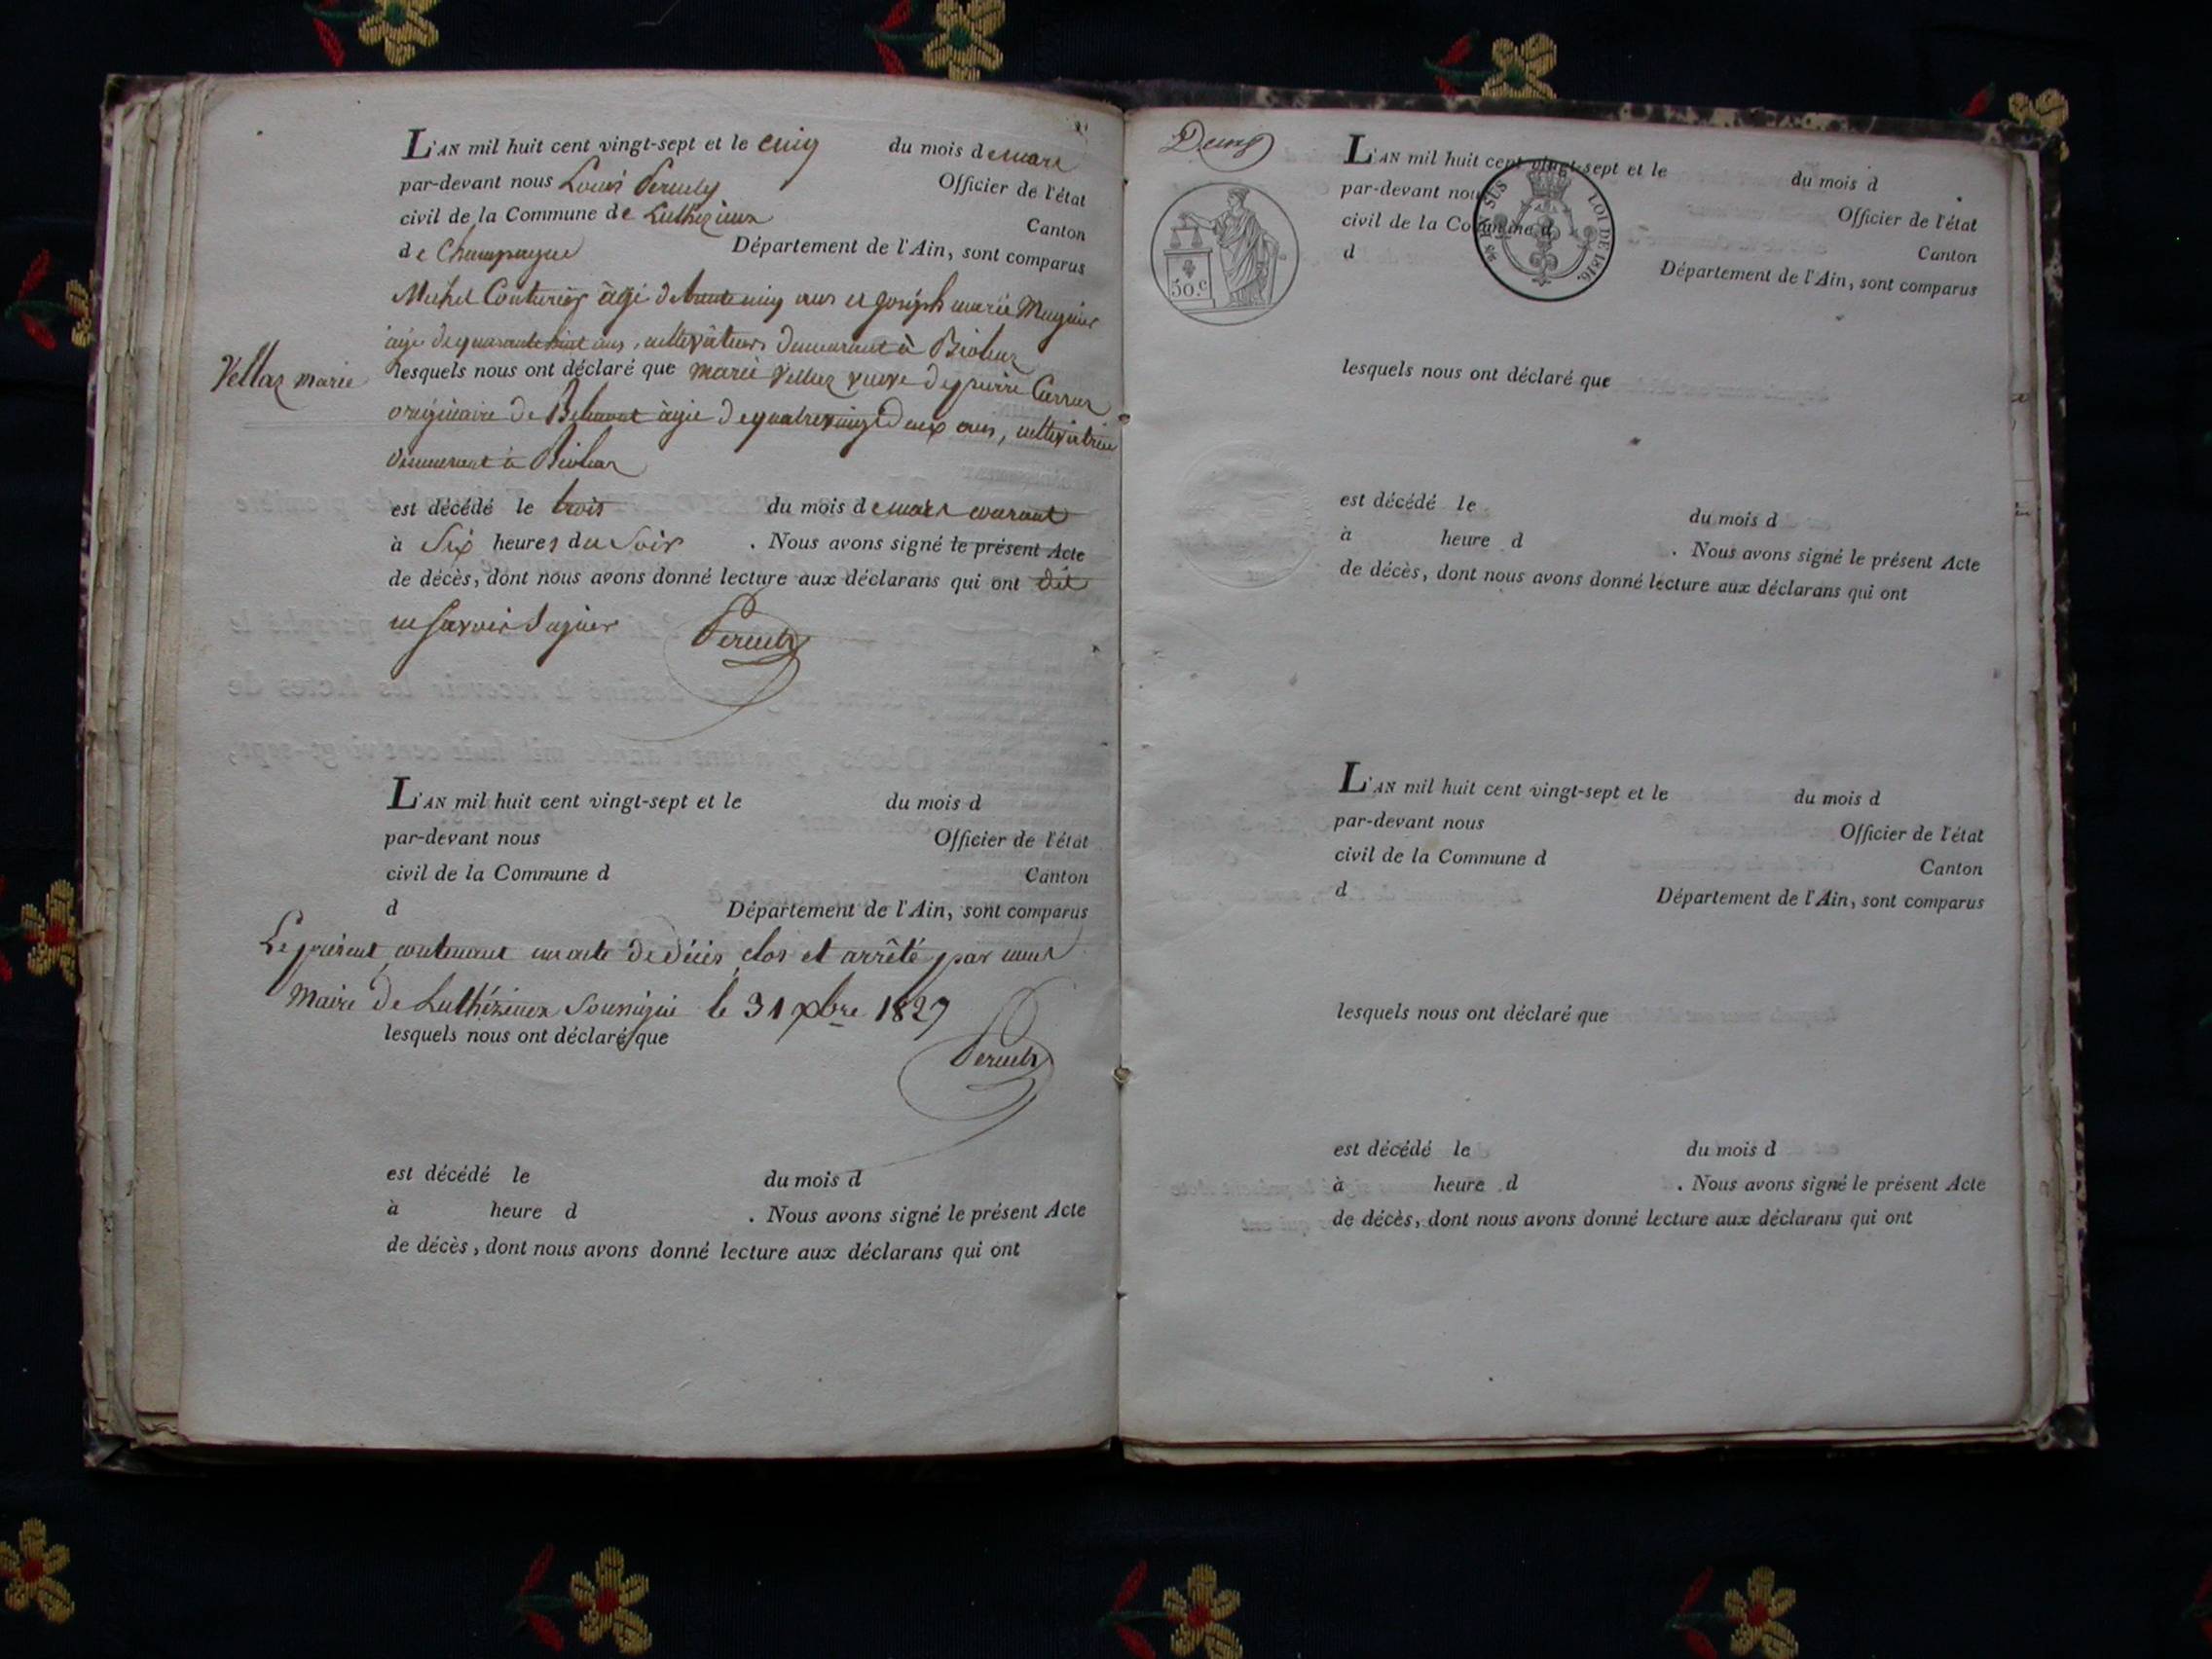 L'AN mil huit cent vingt-sept et le cinq du mois de mars
par-devant nous Louis Officier de l'état
civil de la Commune de Luthézieux Canton
de Champagne Département de l'Ain, sont comparus
Michel Couturier âgé de trente cinq ans et joseph marie Mugnier
âgé de quarante huit ans, cultivateurs demeurant à Bioleaz
Vellaz marie
lesquels nous ont déclaré que marie Vellaz veuve de pierre Carraz
originaire de âgée de quatrevingt deux ans, cultivatrice
demeurant à Bioleaz
est décédé le trois du mois de mars courant
à Six heures du Soir . Nous avons signé le présent Acte
de décès, dont nous avons donné lecture aux déclarans qui ont dit
ne savoir signer
L'AN mil huit cent vingt-sept et le du mois d
par-devant nous Officier de l'état
civil de la Commune d Canton
d Département de l'Ain, sont comparus
Le présent contenant un acte de décès clos et arrêté par nous
Maire de Luthézieux Soussigné le 31 xbre 1827
lesquels nous ont déclaré que
est décédé le du mois d
à heure d . Nous avons signé le présent Acte
de décès, dont nous avons donné lecture aux déclarans qui ont
Deux
L'AN mil huit cent vingt-sept et le du mois d
par-devant nous Officier de l'état
civil de la Commune d Canton
d Département de l'Ain, sont comparus
50.c
LOI DE 1816.
lesquels nous ont déclaré que
est décédé le du mois d
à heure d . Nous avons signé le présent Acte
de décès, dont nous avons donné lecture aux déclarans qui ont
L'AN mil huit cent vingt-sept et le du mois d
par-devant nous Officier de l'état
civil de la Commune d Canton
d Département de l'Ain, sont comparus
lesquels nous ont déclaré que
est décédé le du mois d
à heure d . Nous avons signé le présent Acte
de décès, dont nous avons donné lecture aux déclarans qui ont